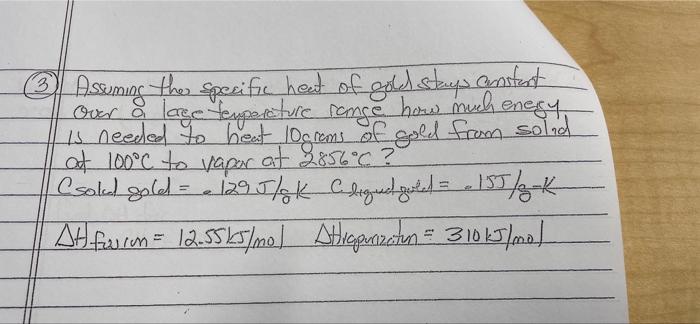 3 Assuming the specific heat of gold stays constant
over a large temperature range how much energy
is needed to heat 10grams of gold from solid
at 100°C to vapor at 2856°C?
C solid gold = .129 J/g K C liquid gold = .15J/g-K
ΔH fusion = 12.55kJ/mol ΔHvaporization = 310kJ/mol